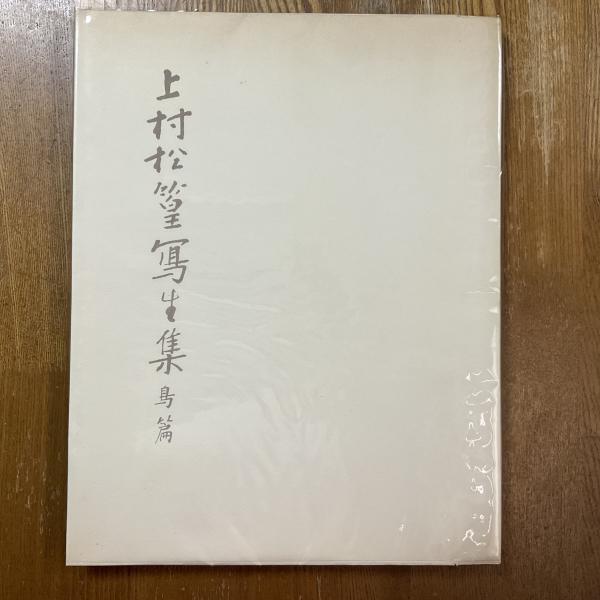 上村松篁寫生集 鳥篇